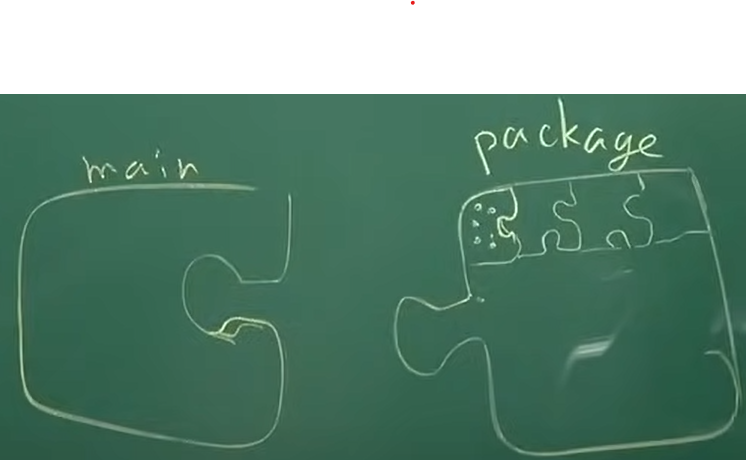 main
package